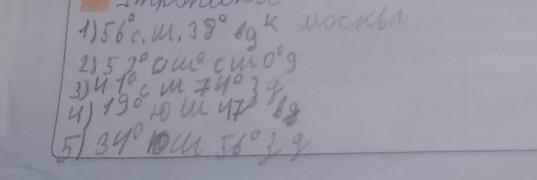 1) 56° с.ш. 38° вд к москвы
2) 52° сш 0° д
3) 41° с ш 74° з д
4) 19° ю ш 47° вд
5) 34° ю ш 56° з д